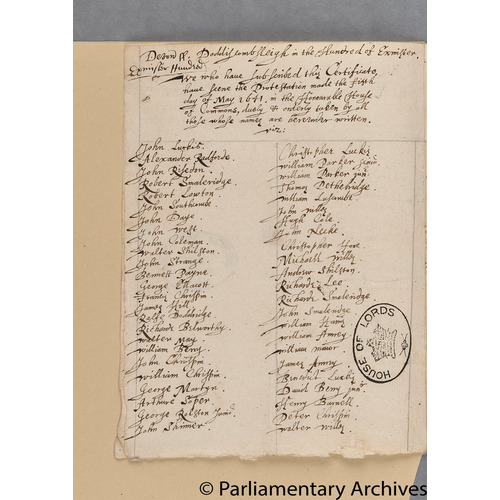 Devon ss. Doddiscombsleigh in the Hundred of Exmister.
Exmister Hundred
We who have subscribed this Certificate,
have seene the Protestation made the fifth
day of May 1641. in the Honourable House
of Commons, duely & orderly taken by all
those whose names are hereunder written.
viz:
John
Alexander Radforde.
John Risdon.
Robert Smaleridge.
Robert Lowton
John Southcombe.
John Daye.
John West.
John Coleman.
Walter Shilston.
John Strange.
Bennett Payne.
George Ellacott.
Francis Chrispin
James Hill.
Rolfe
Richard Bilworthy.
Walter May.
William Berry.
John Chrispin
William Chrispin
George Martyn.
Arthure Soper.
George Rolston
John Skinner.
Christopher
William Parker
William Parker
Thomas Dethebridge
William
John Willy
Hugh Cole.
John
Christopher
Michaell Willy
Andrew Shilston.
Richard Lee.
Richard Smaleridge.
John Smaleridge.
William
William Amrey
William
James Amry.
Benedict
David Berry
Henry Burnell.
Peter Chrispin
Walter Willy
HOUSE OF LORDS
© Parliamentary Archives